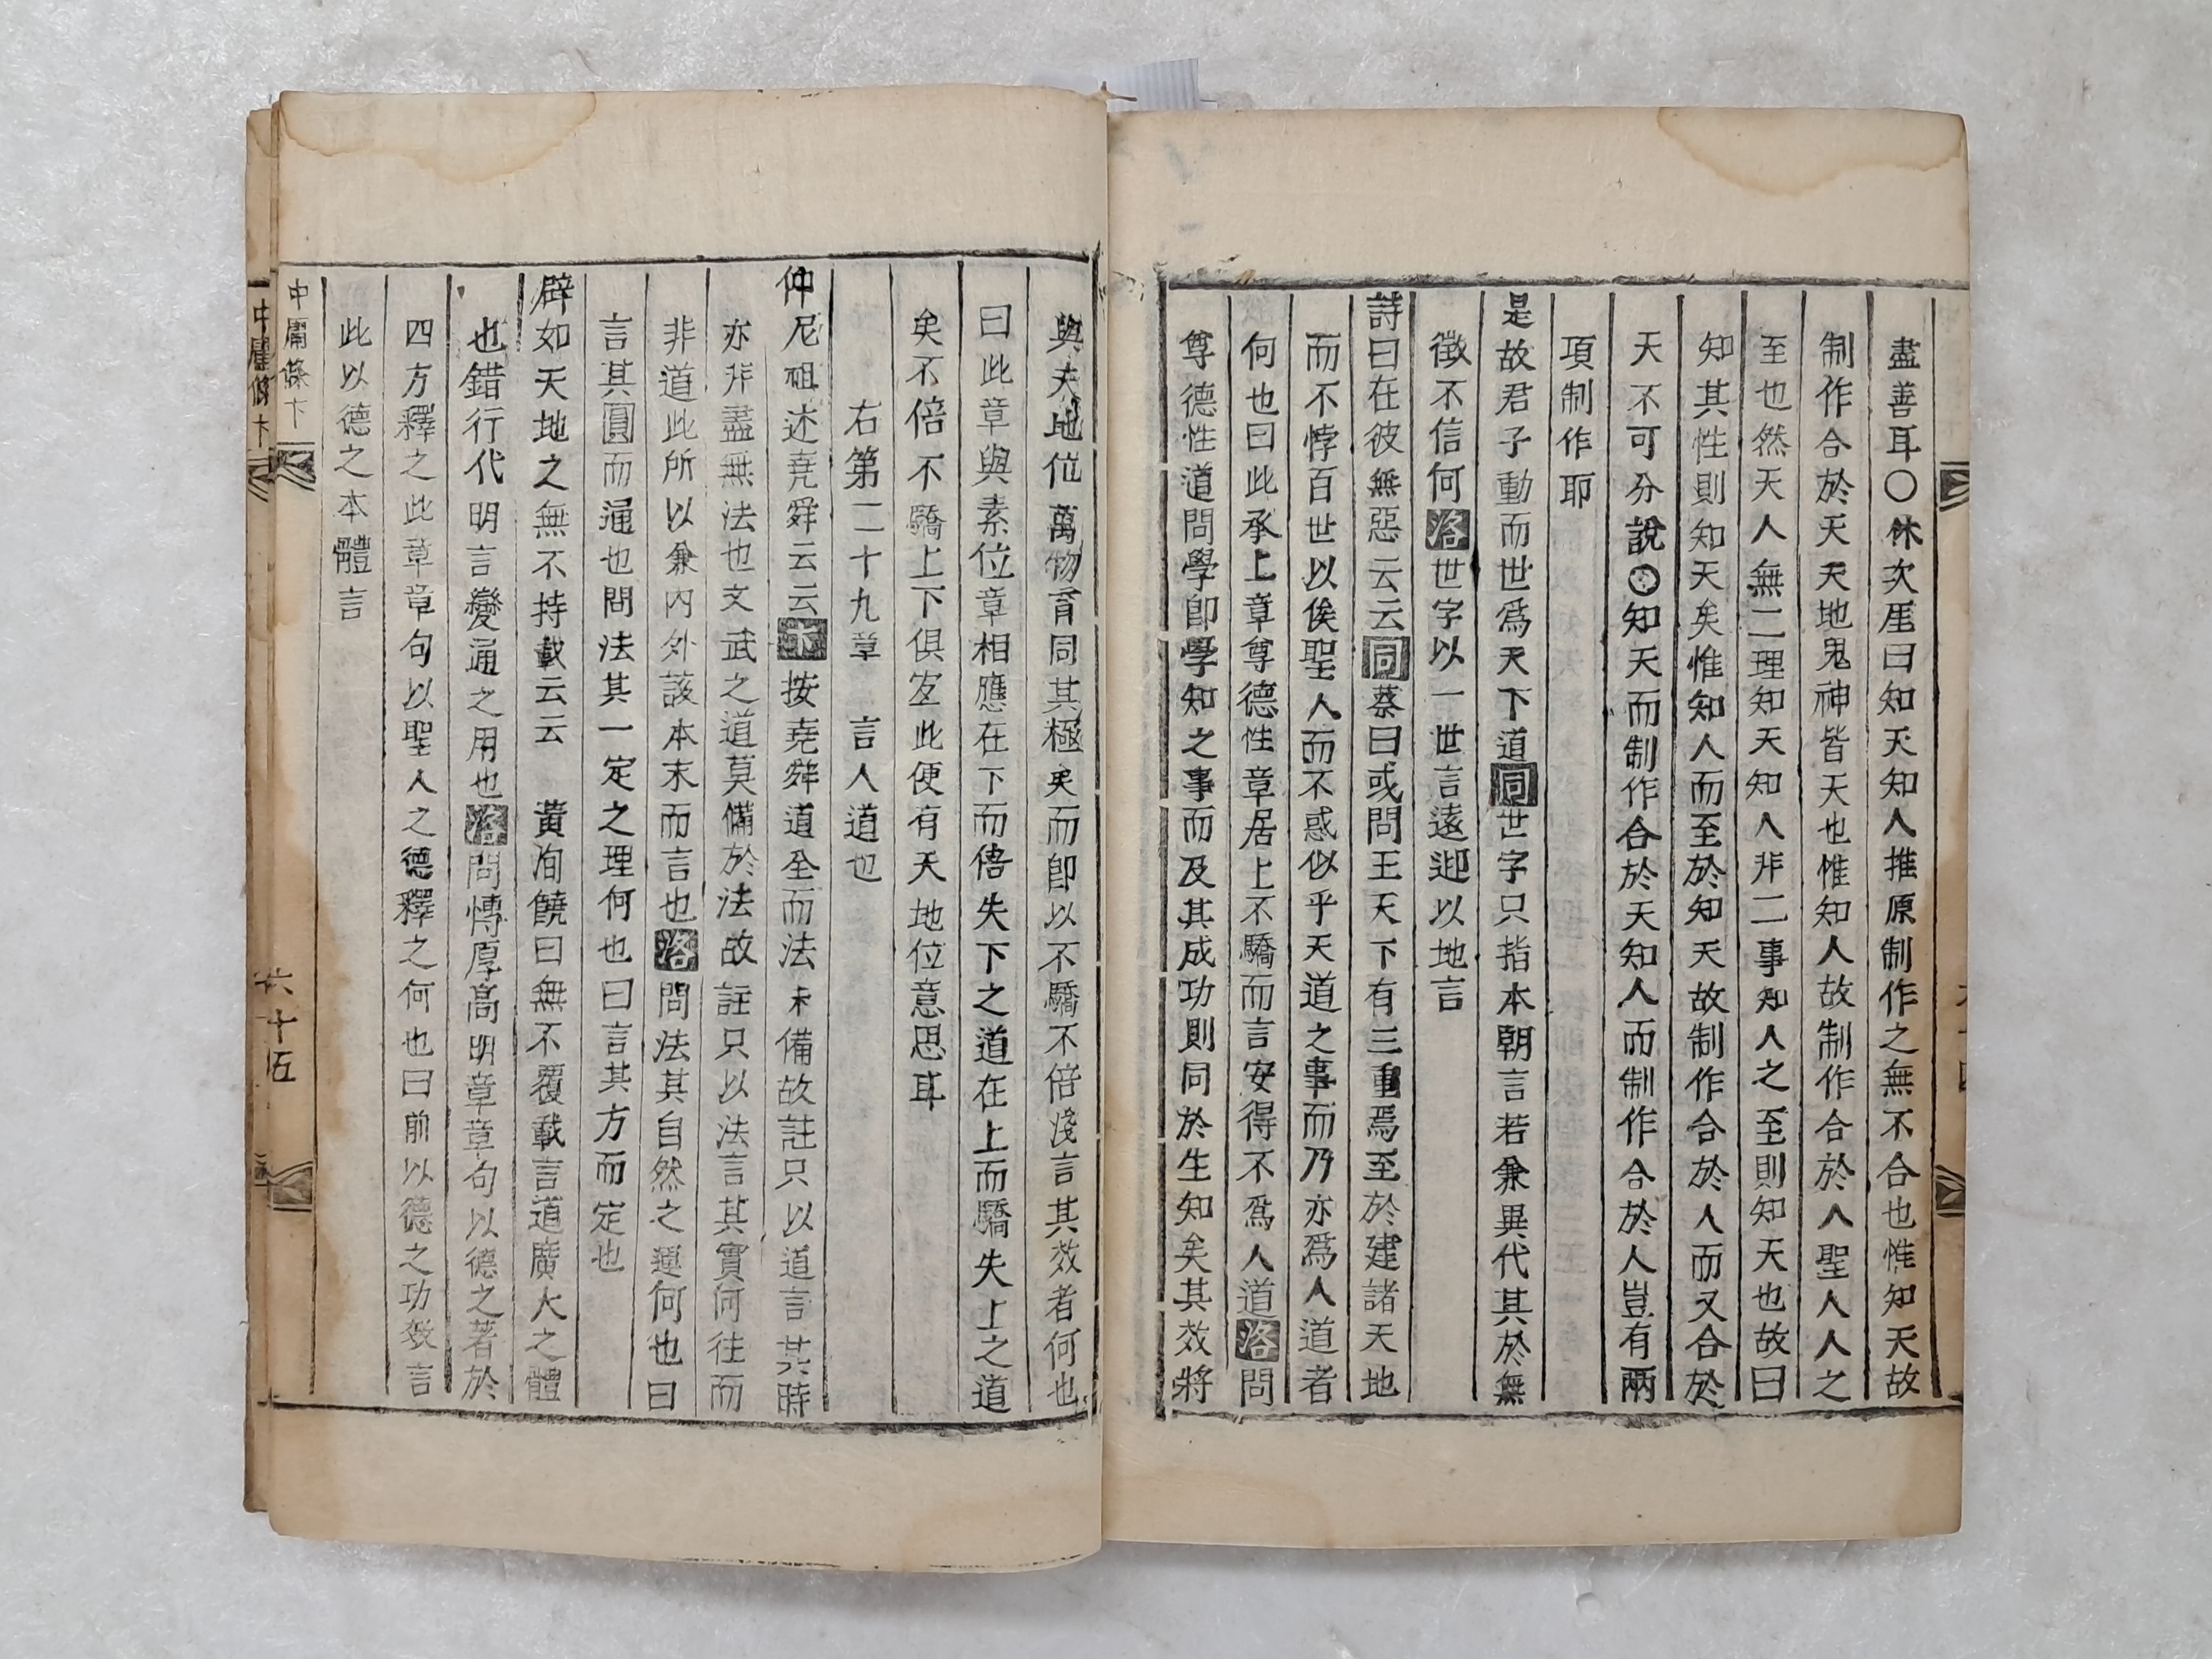 盡善耳○休次厓曰知天知人推原制作之無不合也惟知天故
制作合於天天地鬼神皆天也惟知人故制作合於人聖人人之
至也然天人無二理知天知人非二事知人之至則知天也故曰
知其性則知天矣惟知人而至於知天故制作合於人而又合於
天不可分說○知天而制作合於天知人而制作合於人豈有兩
項制作耶
是故君子動而世爲天下道同世字只指本朝言若兼異代其於無
徵不信何洛世字以一世言遠迎以地言
詩曰在彼無惡云云同蔡曰或問王天下有三重焉至於建諸天地
而不悖百世以俟聖人而不惑似乎天道之事而乃亦爲人道者
何也曰此承上章尊德性章居上不驕而言安得不爲人道洛問
尊德性道問學卽學知之事而及其成功則同於生知矣其效將
與天地位萬物育同其極矣而卽以不驕不倍淺言其效者何也
曰此章與素位章相應在下而倍失下之道在上而驕失上之道
矣不倍不驕上下俱宜此便有天地位意思耳
右第二十九章 言人道也
仲尼祖述堯舜云云卞按堯舜道全而法未備故註只以道言其時
亦非盡無法也文武之道莫備於法故註只以法言其實何往而
非道此所以兼內外該本末而言也洛問法其自然之運何也曰
言其圓而通也問法其一定之理何也曰言其方而定也
辟如天地之無不持載云云 黃洵饒曰無不覆載言道廣大之體
也錯行代明言變通之用也洛問愽厚高明章章句以德之著於
四方釋之此章章句以聖人之德釋之何也曰前以德之功效言
此以德之本體言
中庸條卞
六十五
中庸條卞